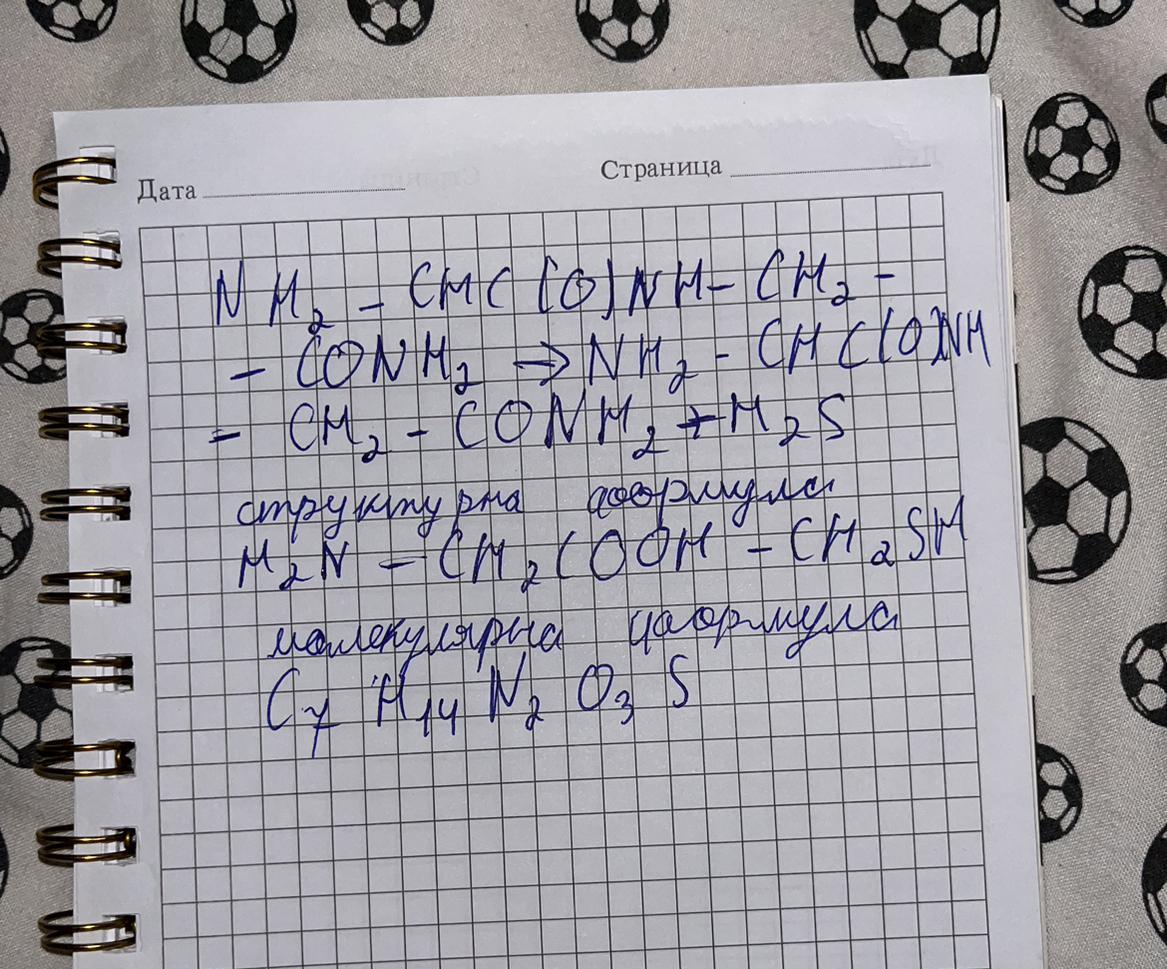 Дата Страница
NH₂ - CHC(O)NH - CH₂ -
- CONH₂ → NH₂ - CHC(O)NH
- CH₂ - CONH₂ + H₂S
структурна формула
H₂N - CH₂COOH - CH₂SH
молекулярна формула
C₇ H₁₄ N₂ O₃ S